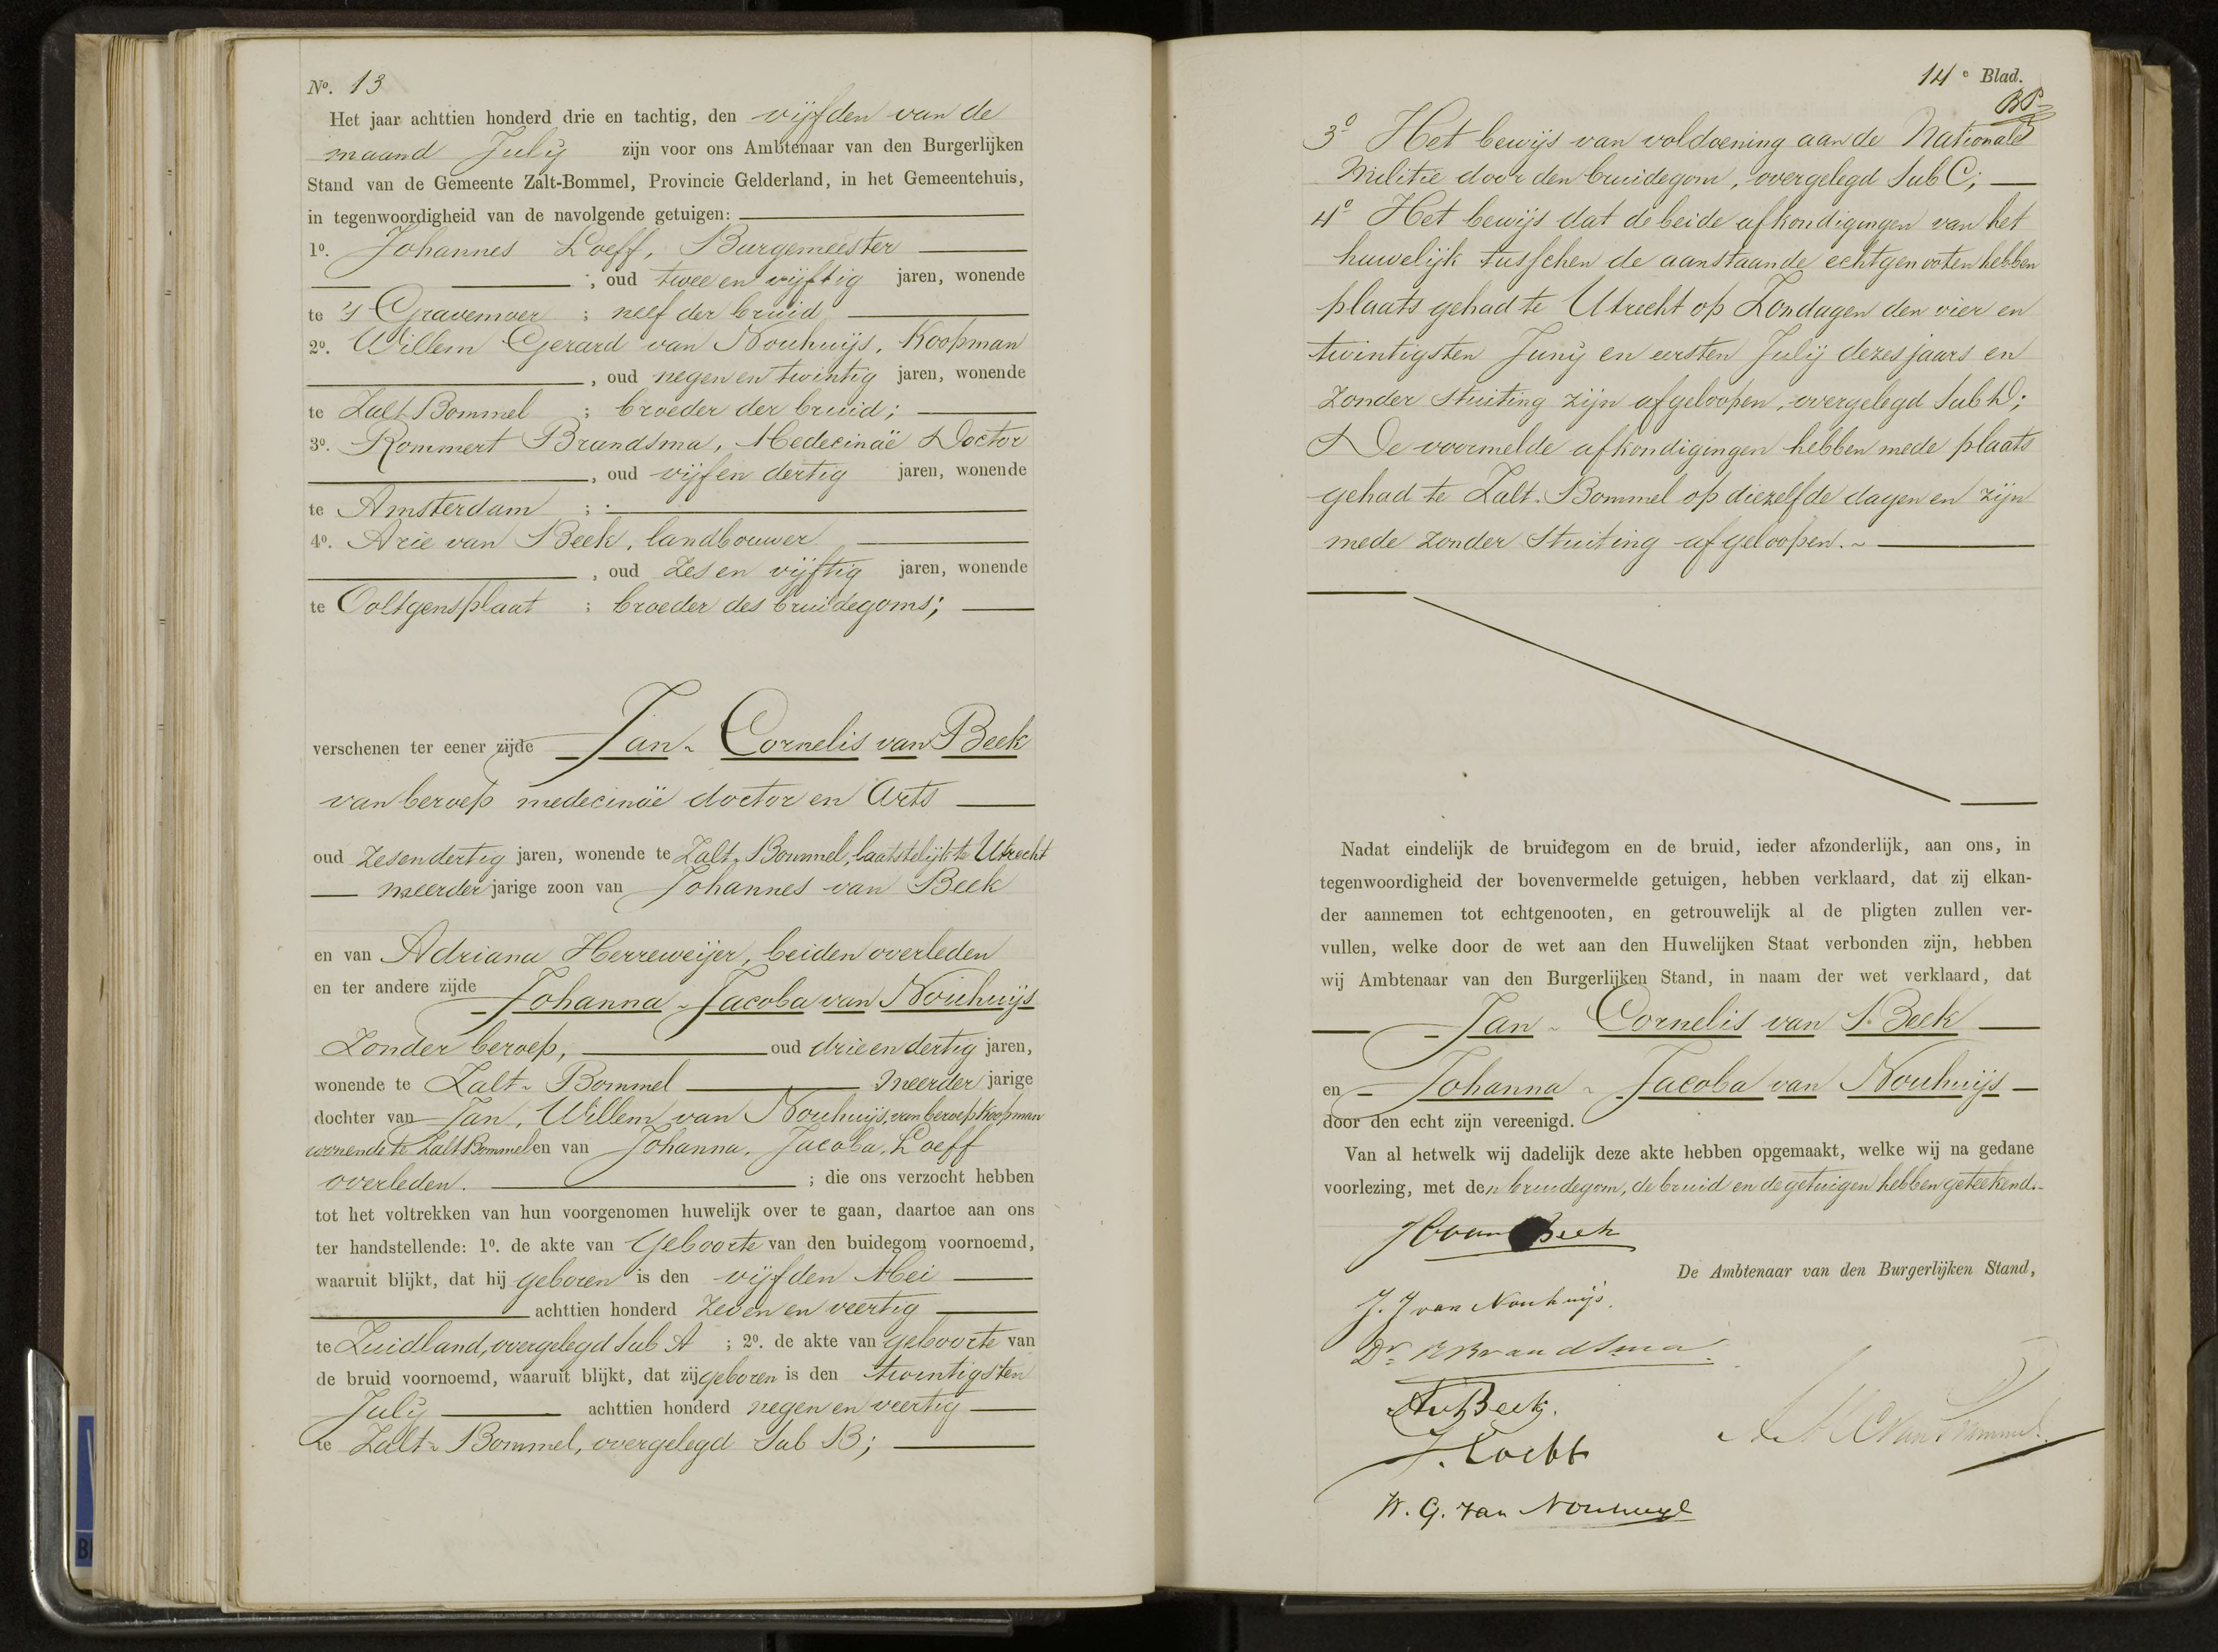 No. 13
Het jaar achttien honderd drie en tachtig, den vijfden van de
maand July zijn voor ons Ambtenaar van den Burgerlijken
Stand van de Gemeente Zalt-Bommel, Provincie Gelderland, in het Gemeentehuis,
in tegenwoordigheid van de navolgende getuigen:
1o. Johannes Loeff, Burgemeester
; oud twee en vijftig jaren, wonende
te 's Gravemoer ; neef der bruid
2o. Willem Gerard van Nouhuijs, Koopman
, oud negen en twintig jaren, wonende
te Zalt Bommel ; broeder der bruid;
3o. Rommert Brandsma, Medecinäe Doctor
, oud vijf en dertig jaren, wonende
te Amsterdam ;
4o. Arie van Beek, landbouwer
, oud Zes en vijftig jaren, wonende
te Ooltgensplaat ; broeder des bruidegoms;
verschenen ter eener zijde Jan Cornelis van Beek
van beroep medecinäe doctor en Arts
oud Zesendertig jaren, wonende te Zalt-Bommel, laatstelijk te Utrecht
meerder jarige zoon van Johannes van Beek
en van Adriana Herreweijer, beiden overleden
en ter andere zijde Johanna Jacoba van Nouhuijs
Zonder beroep, oud drie en dertig jaren,
wonende te Zalt-Bommel meerder jarige
dochter van Jan, Willem van Nouhuijs, van beroep Koopman
wonende te Zalt Bommel en van Johanna, Jacoba, Loeff
overleden. ; die ons verzocht hebben
tot het voltrekken van hun voorgenomen huwelijk over te gaan, daartoe aan ons
ter handstellende: 1o. de akte van Geboorte van den buidegom voornoemd,
waaruit blijkt, dat hij geboren is den vijfden Mei
achttien honderd Zeven en veertig
te Zuidland, overgelegd Sub A ; 2o. de akte van geboorte van
de bruid voornoemd, waaruit blijkt, dat zij geboren is den twintigsten
July achttien honderd negen en veertig
te Zalt-Bommel, overgelegd Sub B;
14e Blad.
3o Het bewijs van voldoening aan de Nationale
Militie door den bruidegom, overgelegd Sub C;
4o Het bewijs dat de beide afkondigingen van het
huwelijk tusschen de aanstaande echtgenooten hebben
plaats gehad te Utrecht op Zondagen den vier en
twintigsten Junij en eersten Julij dezes jaars en
Zonder Stuiting zijn afgeloopen, overgelegd Sub D;
De voormelde afkondigingen hebben mede plaats
gehad te Zalt-Bommel op diezelfde dagen en zijn
mede zonder Stuiting afgeloopen.
Nadat eindelijk de bruidegom en de bruid, ieder afzonderlijk, aan ons, in
tegenwoordigheid der bovenvermelde getuigen, hebben verklaard, dat zij elkan-
der aannemen tot echtgenooten, en getrouwelijk al de pligten zullen ver-
vullen, welke door de wet aan den Huwelijken Staat verbonden zijn, hebben
wij Ambtenaar van den Burgerlijken Stand, in naam der wet verklaard, dat
Jan Cornelis van Beek
en Johanna Jacoba van Nouhuijs
door den echt zijn vereenigd.
Van al hetwelk wij dadelijk deze akte hebben opgemaakt, welke wij na gedane
voorlezing, met den bruidegom, de bruid en de getuigen hebben geteekend.
JC van Beek
De Ambtenaar van den Burgerlijken Stand,
J. J van Nouhuijs.
Dr R Brandsma
AvBeek.
J. Loeff
W. G. van Nouhuys